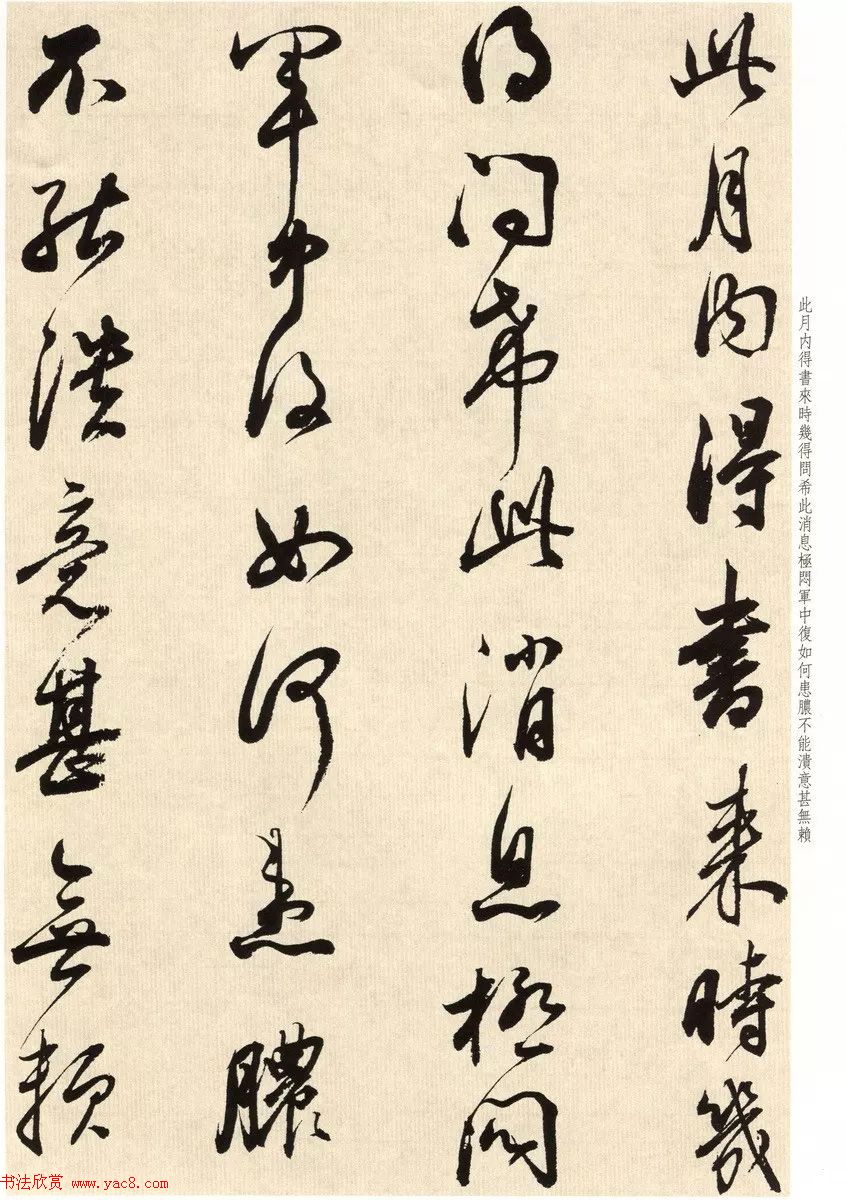 此月内得書来時幾
得問希此消息極悶
軍中復如何患膿
不能潰意甚無賴
此月内得書來時幾得問希此消息極悶軍中復如何患膿不能潰意甚無賴
书法欣赏 www.yac8.com